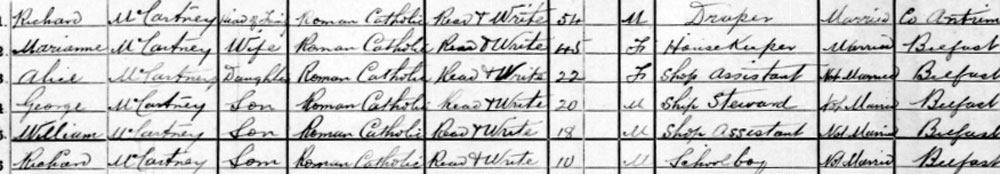 1 Richard McCartney Head of Family Roman Catholic Read & Write 54 M Draper Married Co Antrim
2 Marianne McCartney Wife Roman Catholic Read & Write 45 F Housekeeper Married Belfast
3 Alice McCartney Daughter Roman Catholic Read & Write 22 F Shop Assistant Not Married Belfast
4 George McCartney Son Roman Catholic Read & Write 20 M Ship Steward Not Married Belfast
5 William McCartney Son Roman Catholic Read & Write 18 M Shop Assistant Not Married Belfast
6 Richard McCartney Son Roman Catholic Read & Write 10 M Schoolboy Not Married Belfast